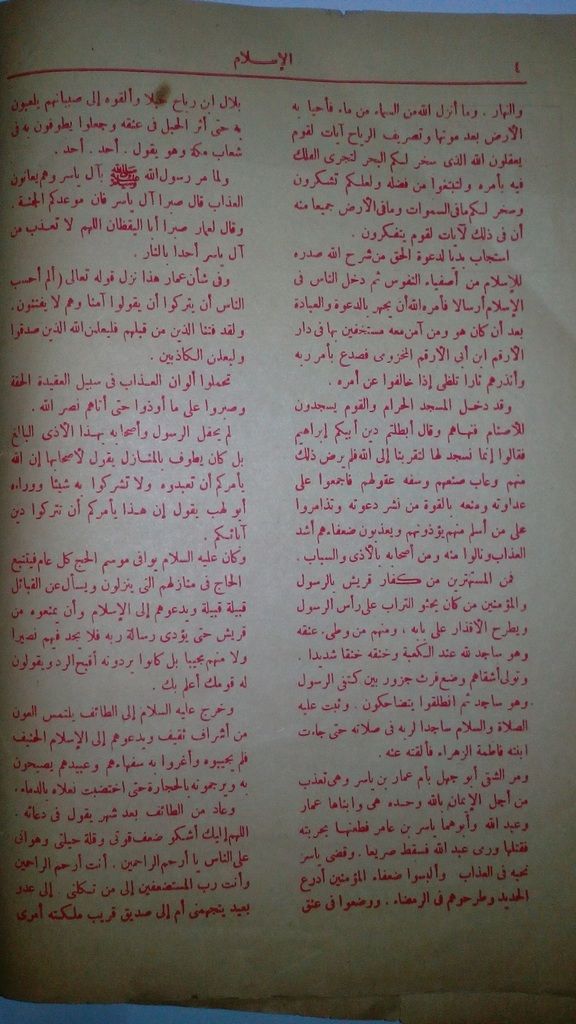 ٤
الإسلام
والنهار . وما أنزل الله من السماء من ماء فأحيا به
الأرض بعد موتها وتصريف الرياح آيات لقوم
يعقلون الله الذى سخر لكم البحر لتجرى الفلك
فيه بأمره ولتبتغوا من فضله ولعلكم تشكرون
وسخر لكم مافى السموات ومافى الأرض جميعا منه
أن فى ذلك لآيات لقوم يتفكرون .
استجاب بديا لدعوة الحق من شرح الله صدره
للإسلام من أصفياء النفوس ثم دخل الناس فى
الإسلام أرسالا فأمره الله أن يجهر بالدعوة والعبادة
بعد أن كان هو ومن آمن معه مستخفين بها فى دار
الأرقم ابن أبى الأرقم المخزومى فصدع بأمر ربه
وأنذرهم نارا تلظى إذا خالفوا عن أمره .
وقد دخل المسجد الحرام والقوم يسجدون
للأصنام فنهاهم وقال أبطلتم دين أبيكم إبراهيم
فقالوا إنما نسجد لها لتقربنا إلى الله فلم يرض ذلك
منهم وعاب صنعهم وسفه عقولهم فأجمعوا على
عداوته ومنعه بالقوة من نشر دعوته وتذامروا
على من أسلم منهم يؤذونهم ويعذبون ضعفاءهم أشد
العذاب ونالوا منه ومن أصحابه بالأذى والسباب .
فمن المستهزئين من كفار قريش بالرسول
والمؤمنين من كان يحثو التراب على رأس الرسول
ويطرح الأقذار على بابه ، ومنهم من وطىء عنقه
وهو ساجد لله عند الكعبة وخنقه خنقا شديدا .
وتولى أشقاهم وضع فرث جزور بين كتفى الرسول
وهو ساجد ثم انطلقوا يتضاحكون . وثبت عليه
الصلاة والسلام ساجدا لربه فى صلاته حتى جاءت
ابنته فاطمة الزهراء فألقته عنه .
ومر الشقى أبو جهل بأم عمار بن ياسر وهى تعذب
من أجل الإيمان بالله وحده هى وابناها عمار
وعبد الله وأبوهما ياسر بن عامر فطعنها بحربته
فقتلها ورمى عبد الله فسقط صريعا . وقضى ياسر
نحبه فى العذاب وألبسوا ضعفاء المؤمنين أدرع
الحديد وطرحوهم فى الرمضاء . ووضعوا فى عنق
بلال ابن رباح حبلا وألقوه إلى صبيانهم يلعبون
به حتى أثر الحبل فى عنقه وجعلوا يطوفون به فى
شعاب مكة وهو يقول . أحد . أحد .
ولما مر رسول الله ﷺ بآل ياسر وهم يعانون
العذاب قال صبرا آل ياسر فان موعدكم الجنة .
وقال لعمار صبرا أبا اليقظان اللهم لا تعذب من
آل ياسر أحدا بالنار .
وفى شأن عمار هذا نزل قوله تعالى (ألم أحسب
الناس أن يتركوا أن يقولوا آمنا وهم لا يفتنون .
ولقد فتنا الذين من قبلهم فليعلمن الله الذين صدقوا
وليعلمن الكاذبين .
تحملوا ألوان العذاب فى سبيل العقيدة الحقة
وصبروا على ما أوذوا حتى أتاهم نصر الله .
لم يحفل الرسول وأصحابه بهذا الأذى البالغ
بل كان يطوف بالمنازل يقول لأصحابها إن الله
يأمركم أن تعبدوه ولا تشركوا به شيئا ووراءه
أبو لهب يقول إن هذا يأمركم أن تتركوا دين
آبائكم .
وكان عليه السلام يوافى موسم الحج كل عام فيتتبع
الحاج فى منازلهم التى ينزلون ويسأل عن القبائل
قبيلة قبيلة ويدعوهم إلى الإسلام وأن يمنعوه من
قريش حتى يؤدى رسالة ربه فلا يجد فيهم نصيرا
ولا منهم مجيبا بل كانوا يردونه أقبح الرد ويقولون
له قومك أعلم بك .
وخرج عليه السلام إلى الطائف يلتمس العون
من أشراف ثقيف ويدعوهم إلى الإسلام الحنيف
فلم يجيبوه وأغروا به سفهاءهم وعبيدهم يصيحون
به ويرجمونه بالحجارة حتى اختضبت نعلاه بالدماء .
وعاد من الطائف بعد شهر يقول فى دعائه .
اللهم إليك أشكو ضعف قوتى وقلة حيلتى وهوانى
على الناس يا أرحم الراحمين . أنت أرحم الراحمين
وأنت رب المستضعفين إلى من تكلنى . إلى عدو
بعيد يتجهمنى أم إلى صديق قريب ملكته أمرى